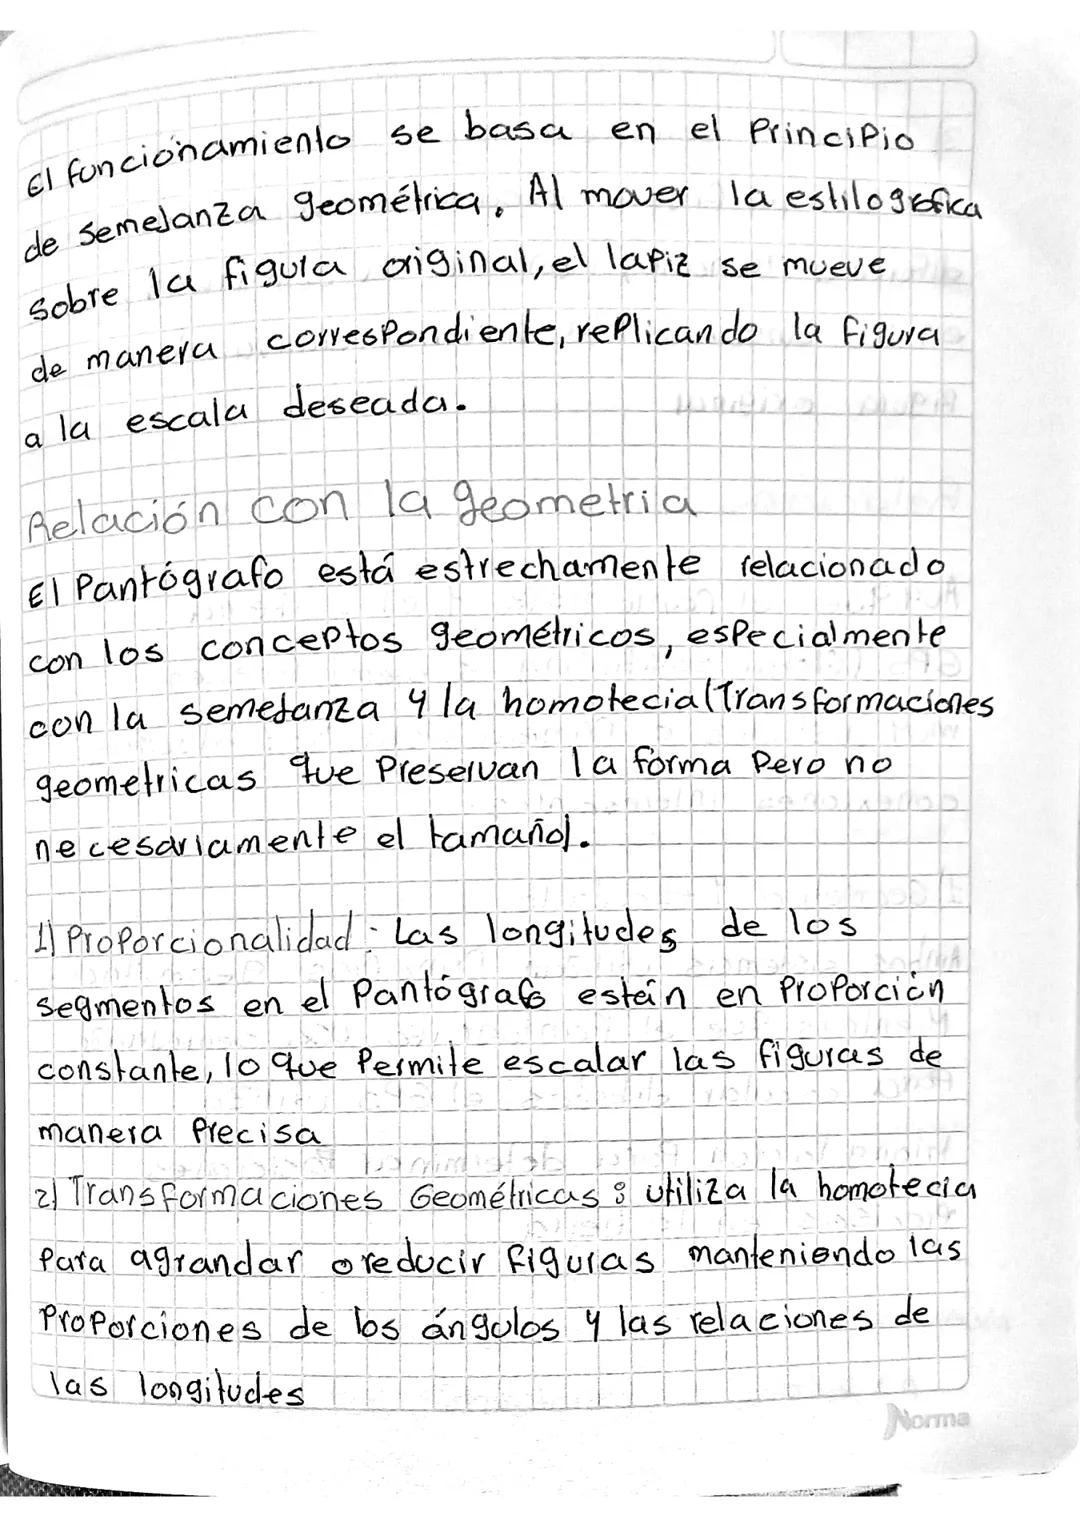 El funcionamiento se basa en el Principio
de semeJanza geométrica. Al mover la estilografica
sobre la figura original, el lapiz se mueve
de manera correspondiente, replicando la figura
a la escala deseada.
Relación con la geometria
El Pantógrafo está estrechamente relacionado
con los conceptos geométricos, especialmente
con la semeJanza y la homotecia (Transformaciones
geometricas que Preservan la forma Pero no
necesariamente el tamaño).
1) Proporcionalidad: Las longitudes de los
segmentos en el Pantógrafo están en Proporción
constante, lo que Permite escalar las figuras de
manera Precisa
2) Transformaciones Geométricas: utiliza la homotecia
Para agrandar o reducir figuras manteniendo las
Proporciones de los ángulos y las relaciones de
las longitudes
Norma